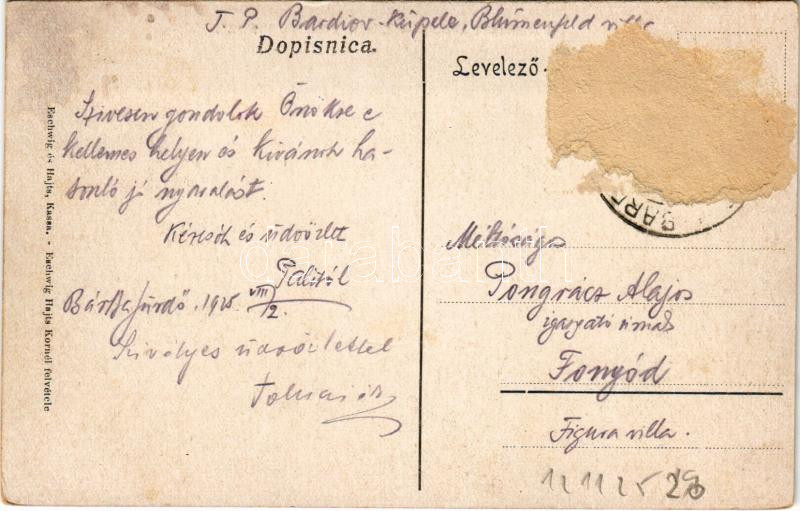 T. P. Bardiov-Kúpele, Blumenfeld villa
Dopisnica.
Levelező
Szivesen gondolok Önökre e
kellemes helyen és kivánok ha-
sonló jó nyaralást.
Kézcsók és üdvözlet
Palitól
Bártfafürdő, 1925 VIII/2.
Szivélyes üdvözlettel
Eschwig és Hajts, Kassa. - Eschwig Hajts Kornél felvétele
BARD
Méltóságos
Pongrácz Alajos
igazgató úrnak
Fonyód
Figura villa.